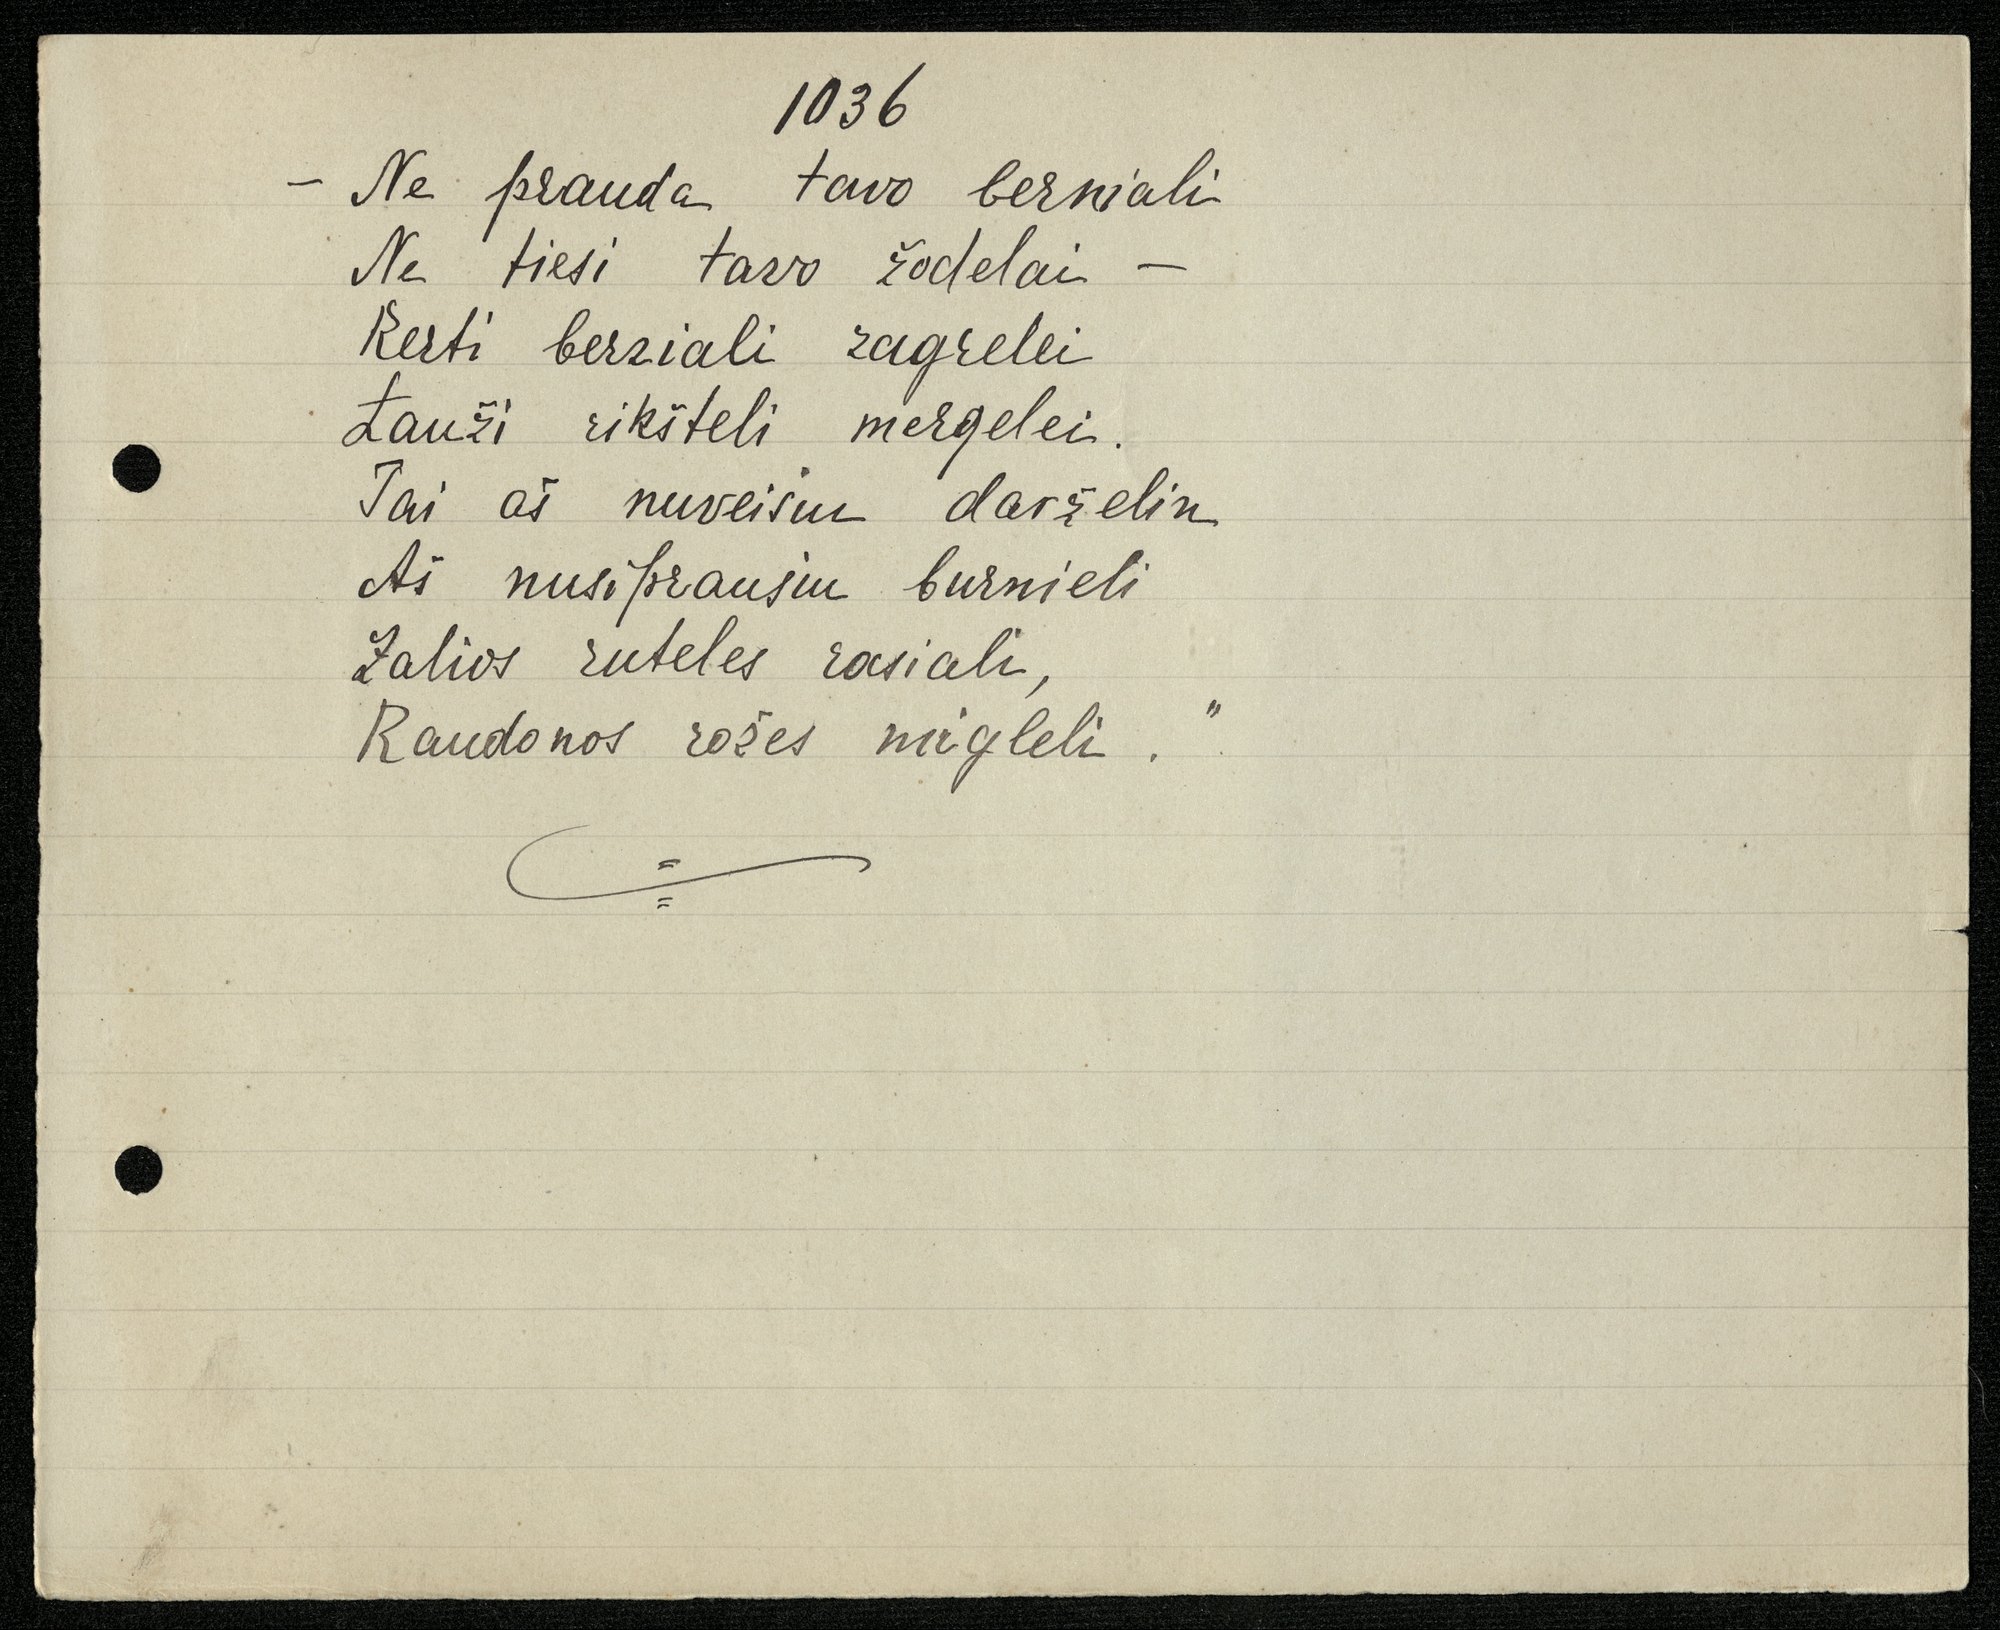 1036
– Ne prauda tavo berniali
Ne tiesi tavo žodelai –
Kerti berziali zagrelei
Łauži rikšteli mergelei.
Tai aš nuveisiu darželin
Aš nusiprausiu burnieli
Žalios ruteles rasiali,
Raudonos rožes migleli."